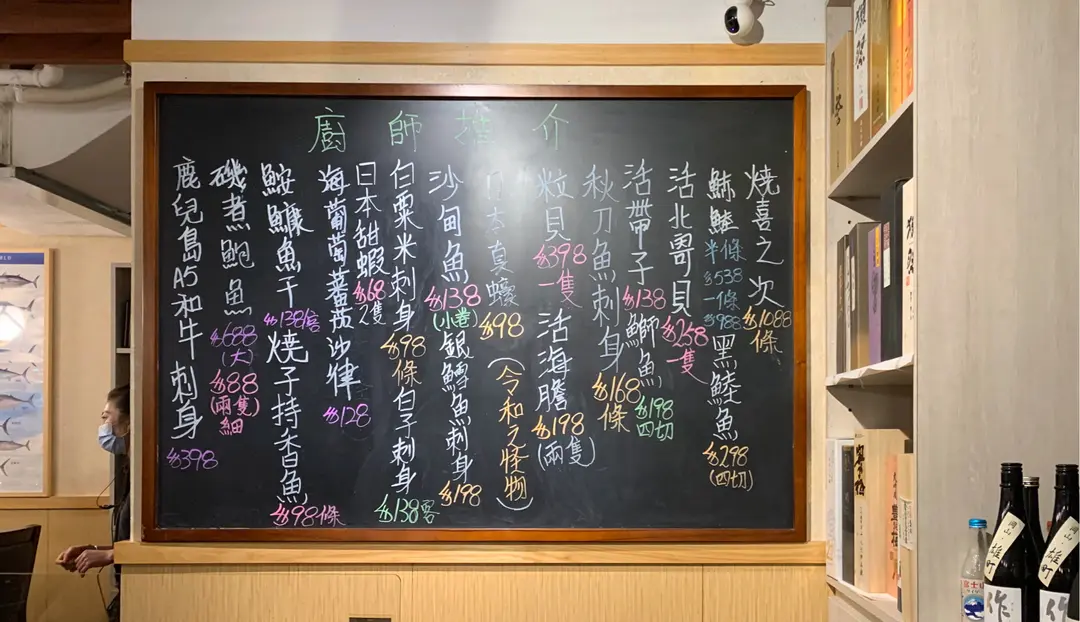 廚師推介
燒喜之次 $1088 條
魬鮭 半條 $538 一條 $988 黑鯥魚 $298 (四切)
活北寄貝 $258 一隻
活帶子 $138 鰤魚 $198 四切
秋刀魚刺身 $168 條
粒貝 $398 一隻 活海膽 $198 (兩隻)
日本真蠔 $98 (令和之怪物)
沙甸魚 $138 (小卷) 銀鱈魚刺身 $198
白粟米刺身 $98 條 白子刺身 $138 客
日本甜蝦 $68 2隻
海葡萄蕃茄沙律 $128
鮟鱇魚干 $138 客 燒子持香魚 $98 條
磯煮鮑魚 $688 (大) $88 (兩隻) 細
鹿兒島A5和牛刺身 $398
岡山・雄町
作
岡山・雄町
作